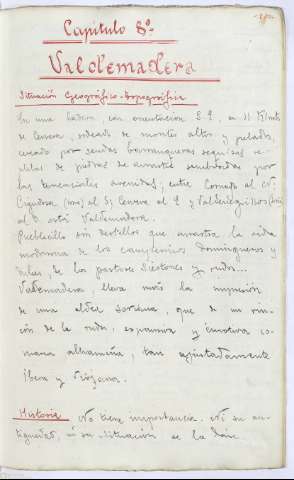 Capítulo 8º
Valdemadera
Situación Geográfico-topográfica
En una ladera, con orientación S.E. a 11 Kilmts
de Cervera, rodeado de montes altos y pelados,
cercado por sendas barranqueras seguidas re-
pletas de piedras de arrastre sembradas por
las torrenciales avenidas; entre Cornago al N.
Cigudosa (Soria) al S; Cervera al E y Valdeprado (Soria)
al O. está Valdemadera.
Pueblecillo sin destellos que arrastra la vida
modorra de los domingueros y
de los pastores y rudos...
Valdemadera, lleva más la impresión
de una aldea soriana, que de un rin-
cón de la ruda, expansiva y emotiva co-
marca alhameña, tan ajustadamente
ibera y riojana.
Historia No tiene importancia. Ni su an-
tigüedad, ni su situación se la dan.